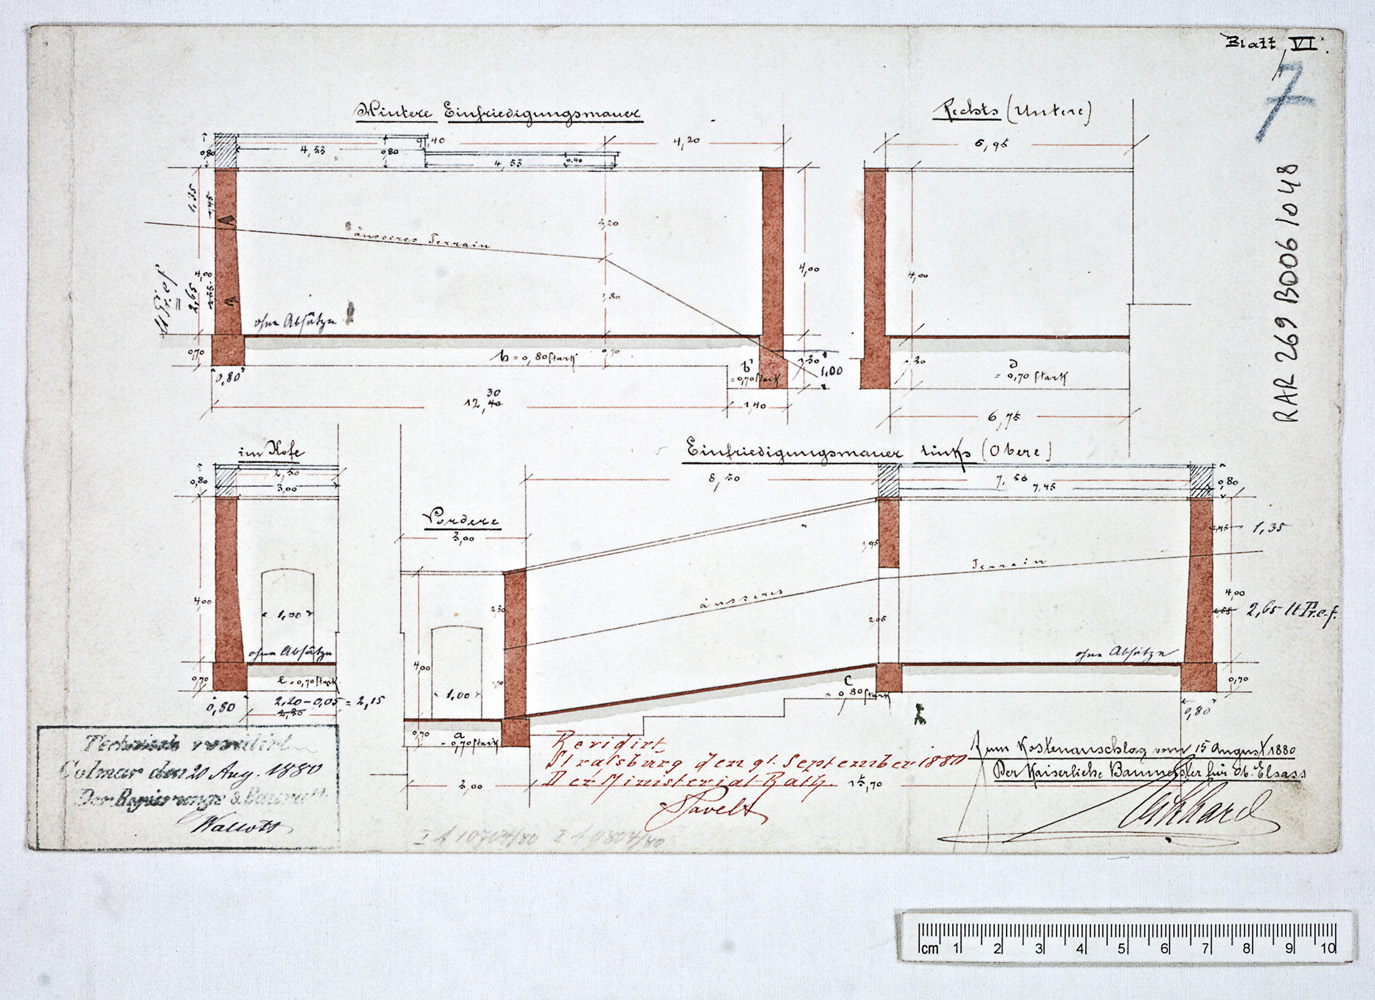 Blatt VI.
7
Hintere Einfriedigungsmauer
Rechts (Untere)
0,80
4,53
0,80
0,40
4,53
0,40
4,20
6,95
1,35
äusseres Terrain
2,20
4,00
2,65
4,00
4,00
1,80
ohne Absätze
0,70
b = 0,80 stark
0,70
b' = 0,70 stark
1,00
d = 0,70 stark
0,80
12,40
30
1,40
6,75
RAR 269 B006 1048
im Hofe
Einfriedigungsmauer links (Obere)
0,80
2,50
3,00
8,50
7,56
7,45
0,80
Vordere
3,00
1,95
1,35
Terrain
äusseres
4,00
1,00
2,05
4,00
2,65 lt Pr.e.f.
ohne Absätze
ohne Absätze
4,00
1,00
0,70
e = 0,70 stark
0,70
0,80
2,20-0,05 = 2,15
2,85
c = 0,80 stark
0,80
0,70
a = 0,70 stark
3,00
15,70
Technisch revidirt
Colmar den 20 Aug. 1880
Der Regierungs & Baurath
Revidirt
Stralsburg den 9t. September 1880
Der Ministerial Rath.
Zum Kostenanschlag vom 15 August 1880
Der Kaiserliche Baumeister für Ob. Elsass
cm 1 2 3 4 5 6 7 8 9 10